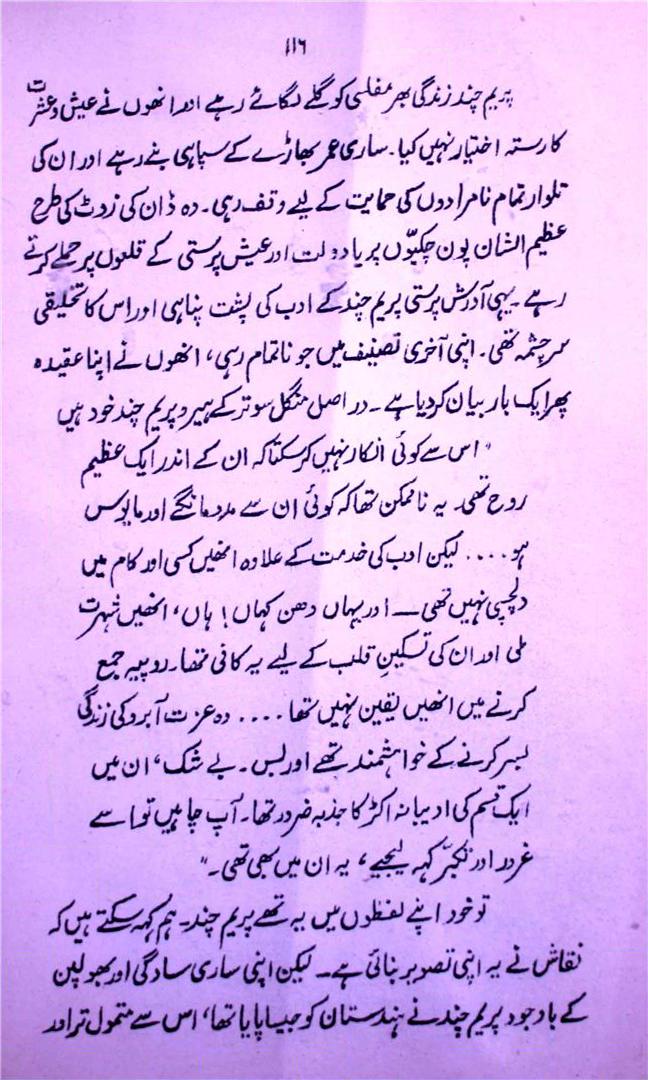 ۱۱۶
پریم چند زندگی بھر مفلسی کو گلے لگائے رہے اور انھوں نے عیش و عشرت
کا رستہ اختیار نہیں کیا۔ ساری عمر بھاڑے کے سپاہی بنے رہے اور ان کی
تلوار تمام نامرادوں کی حمایت کے لیے وقف رہی۔ وہ ڈان کی زوٹ کی طرح
عظیم الشان پون چکیوّں پر یا دولت اور عیش پرستی کے قلعوں پر حملے کرتے
رہے۔ یہی آدرش پرستی پریم چند کے ادب کی پشت پناہی اور اس کا تخلیقی
سرچشمہ تھی۔ اپنی آخری تصنیف میں جو ناتمام رہی، انھوں نے اپنا عقیدہ
پھر ایک بار بیان کر دیا ہے۔ در اصل منگل سوتر کے ہیرو پریم چند خود ہیں
"اس سے کوئی انکار نہیں کر سکتا کہ ان کے اندر ایک عظیم
روح تھی۔ یہ ناممکن تھا کہ کوئی ان سے مدد مانگے اور مایوس
ہو.... لیکن ادب کی خدمت کے علاوہ انھیں کسی اور کام میں
دلچسپی نہیں تھی — اور یہاں دھن کہاں! ہاں، انھیں شہرت
ملی اور ان کی تسکینِ قلب کے لیے یہ کافی تھا۔ روپیہ جمع
کرنے میں انھیں یقین نہیں تھا.... وہ عزت آبرو کی زندگی
بسر کرنے کے خواہشمند تھے اور بس۔ بے شک، ان میں
ایک قسم کی ادیبانہ اکڑ کا جذبہ ضرور تھا۔ آپ چاہیں تو اسے
غرور اور تکبّر کہہ لیجیے، یہ ان میں بھی تھی۔"
تو خود اپنے لفظوں میں یہ تھے پریم چند۔ ہم کہہ سکتے ہیں کہ
نقاش نے یہ اپنی تصویر بنائی ہے۔ لیکن اپنی ساری سادگی اور بھولپن
کے باوجود پریم چند نے ہندستان کو جیسا پایا تھا، اس سے متمول تر اور